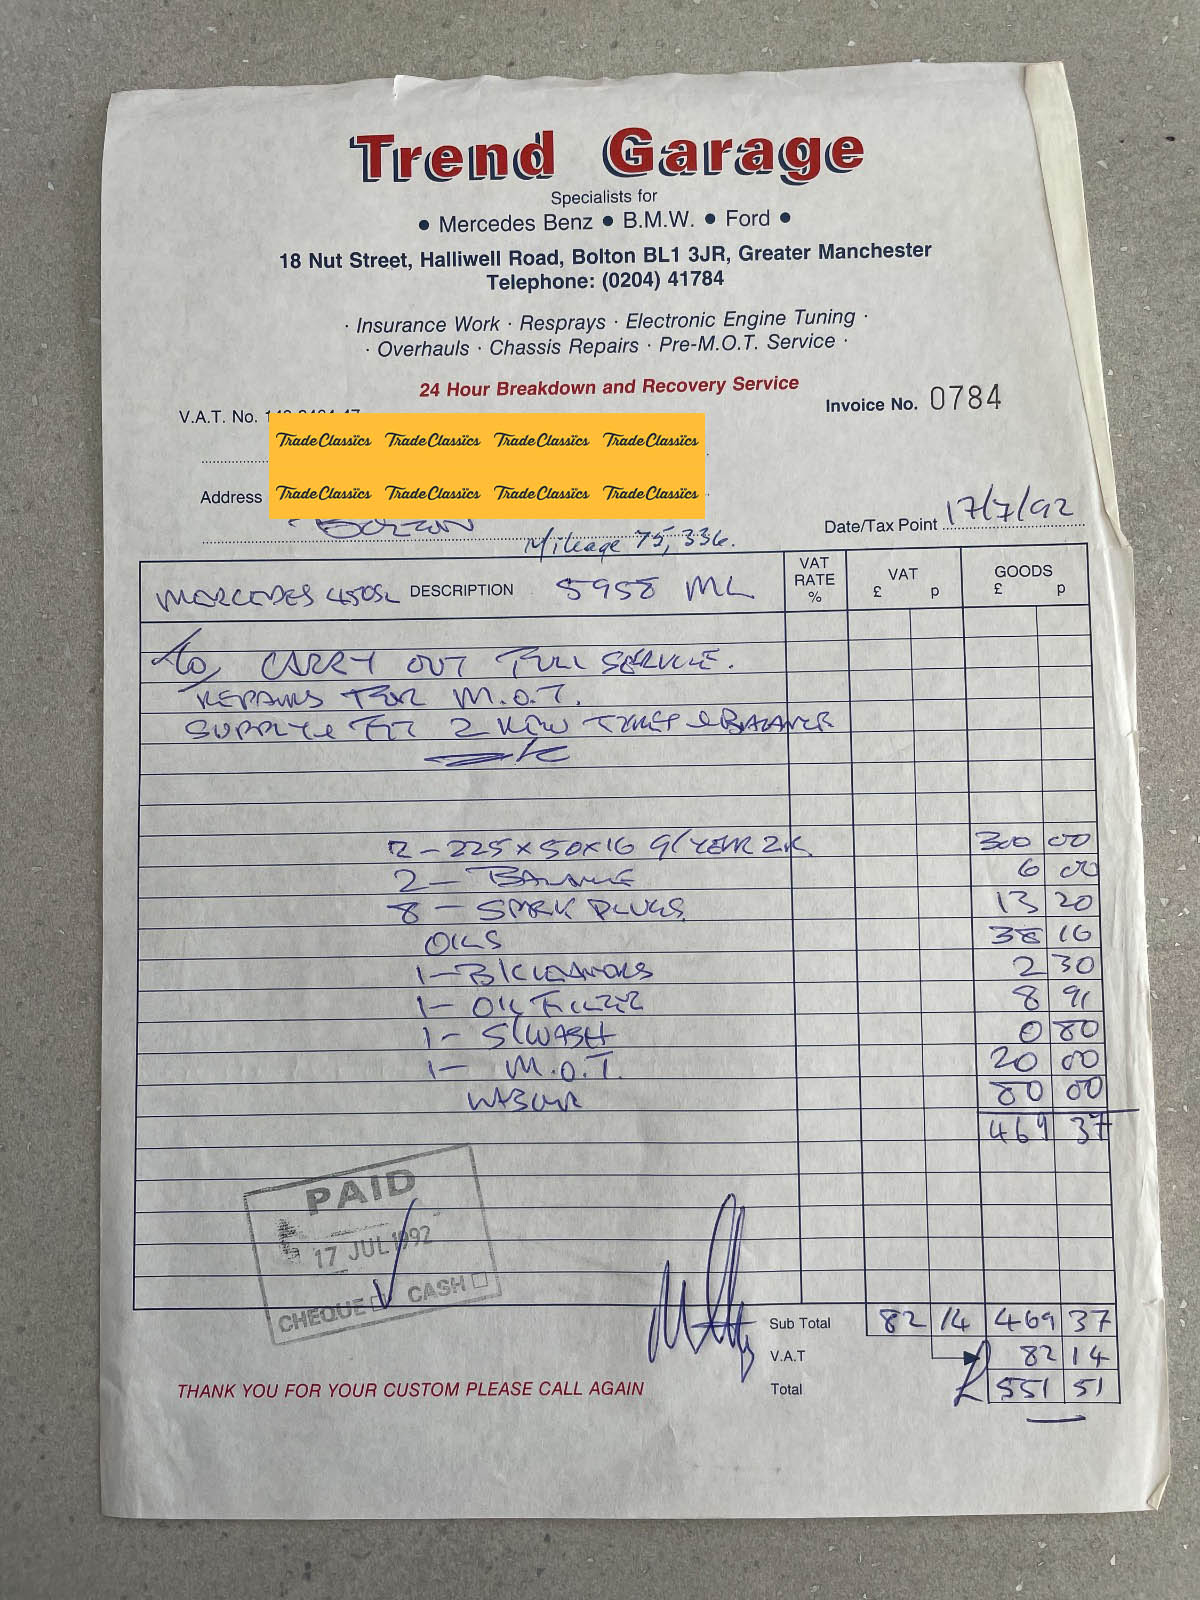 Trend Garage
Specialists for
• Mercedes Benz • B.M.W. • Ford •
18 Nut Street, Halliwell Road, Bolton BL1 3JR, Greater Manchester
Telephone: (0204) 41784
· Insurance Work · Resprays · Electronic Engine Tuning ·
· Overhauls · Chassis Repairs · Pre-M.O.T. Service ·
24 Hour Breakdown and Recovery Service
V.A.T. No.
Invoice No. 0784
TradeClassics TradeClassics TradeClassics TradeClassics
Address TradeClassics TradeClassics TradeClassics TradeClassics
Date/Tax Point 17/7/92
Mileage 75,336.
MERCEDES 450SL DESCRIPTION 5958 ML
VAT RATE % VAT £ p GOODS £ p
To CARRY OUT FULL SERVICE.
REPAIRS FOR M.O.T.
SUPPLY & FIT 2 NEW TYRES & BALANCE
2 - 225 x 50 x 16 G/YEAR ZR 300 00
2 - BALANCE 6 00
8 - SPARK PLUGS 13 20
OILS 38 16
1 - B/CLEANORS 2 30
1 - OIL FILTER 8 91
1 - S/WASH 0 80
1 - M.O.T. 20 00
LABOUR 80 00
469 37
PAID
17 JUL 1992
CHEQUE CASH
Sub Total 82 14 469 37
V.A.T 82 14
Total £ 551 51
THANK YOU FOR YOUR CUSTOM PLEASE CALL AGAIN